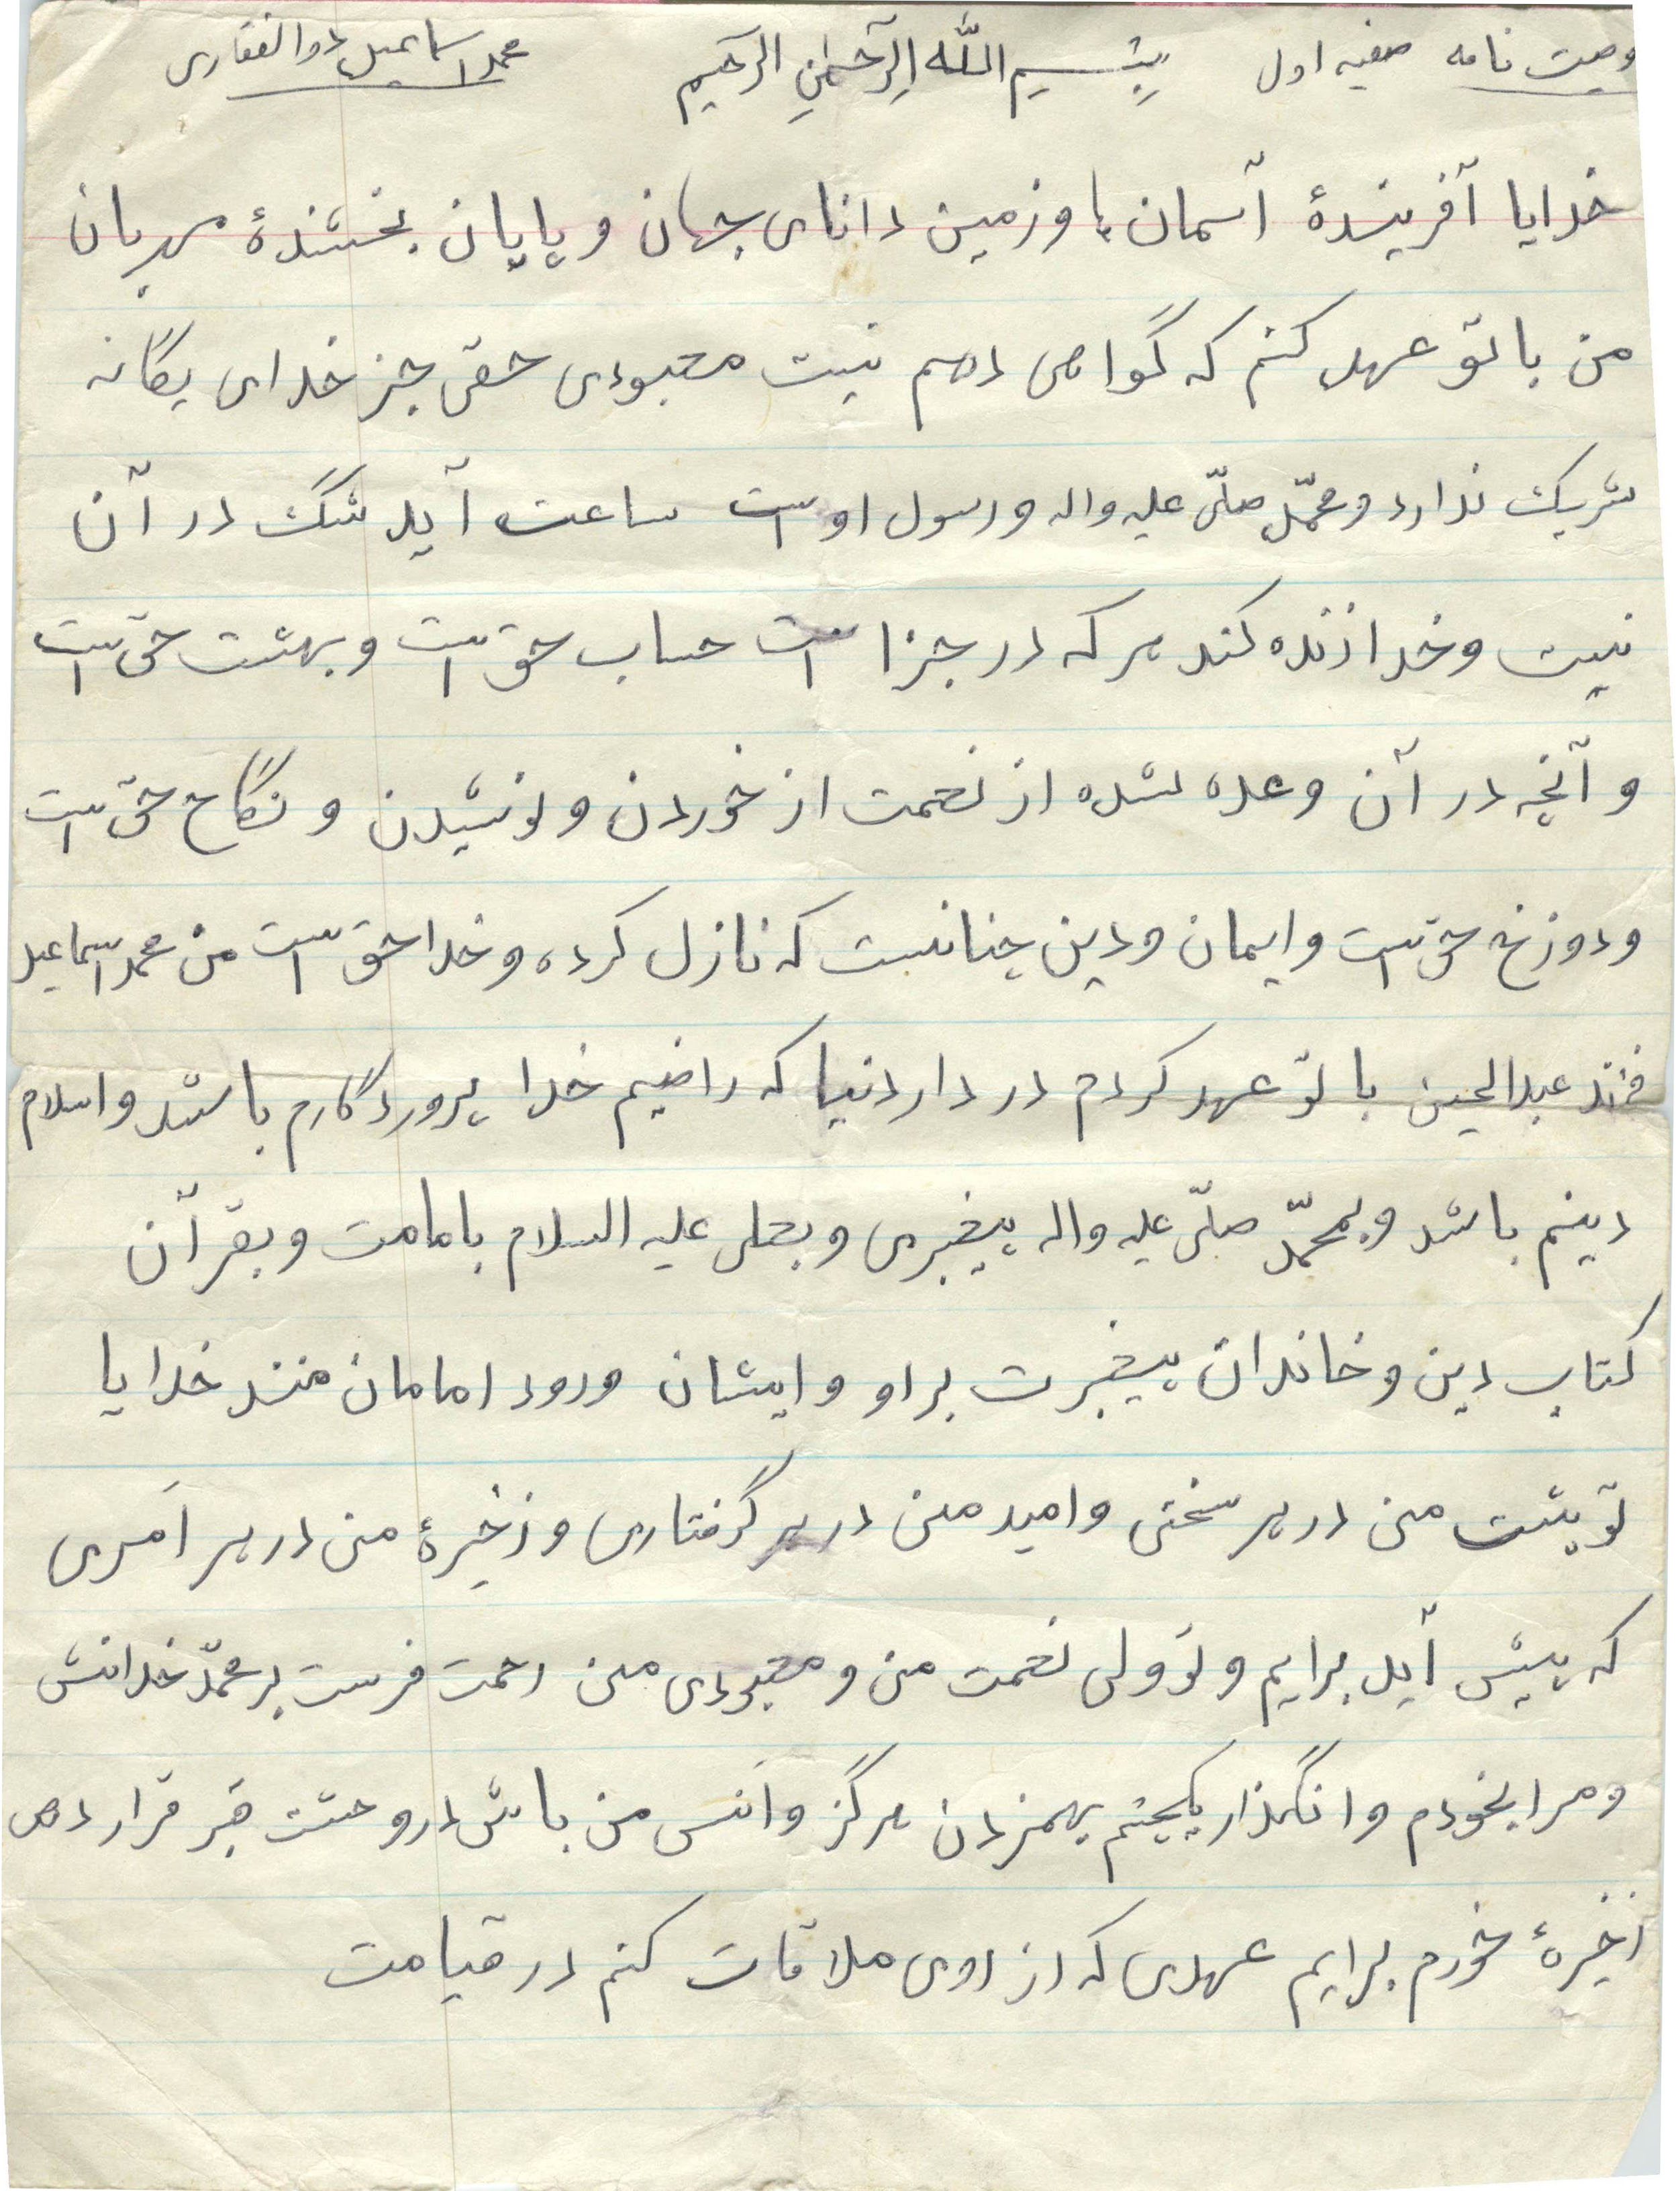 وصیت نامه صفحه اول بِسْمِ اللّٰهِ الرَّحمٰنِ الرَّحیم محمد اسماعیل ذوالفقاری
خدایا آفرینندهٔ آسمان ها و زمین دانای جهان و پایان بخشندهٔ مهربان
من با تو عهد کنم که گواهی دهم نیست معبودی حقی جز خدای یگانه
شریک ندارد و محمّد صلّی علیه واله ورسول اوست ساعت آید شک در آن
نیست و خدا زنده کند هر که در جزا است حساب حق است و بهشت حق است
و آنچه در آن وعده شده از نعمت از خوردن و نوشیدن و نکاح حق است
ودوزخ حق است وایمان ودین چنانست که نازل کرده و خدا حق است من محمد اسماعیل
فرزند عبدالحسین با تو عهد کردم در دار دنیا که راضیم خدا پروردگارم باشد و اسلام
دینم باشد و بمحمّد صلّی علیه واله پیغبری و بعلی علیه السلام بامامت و بقرآن
کتاب دین و خاندان پیغبرت بر او و ایشان ورود امامان منند خدایا
تو پشت من در هر سختی و امید من در هر گرفتاری و ذخیرهٔ من در هر اَمری
که پیش آید برایم و تو ولی نعمت من و معبودی من رحمت فرست بر محمّد خدانش
و مرا بخودم وانگذار بکچشم بهمزدن هرگز و اَنس من باش در وحشت قبر قرار ده
ذخیرهٔ خورم برایم عهدی که از روی ملاقات کنم در قیامت